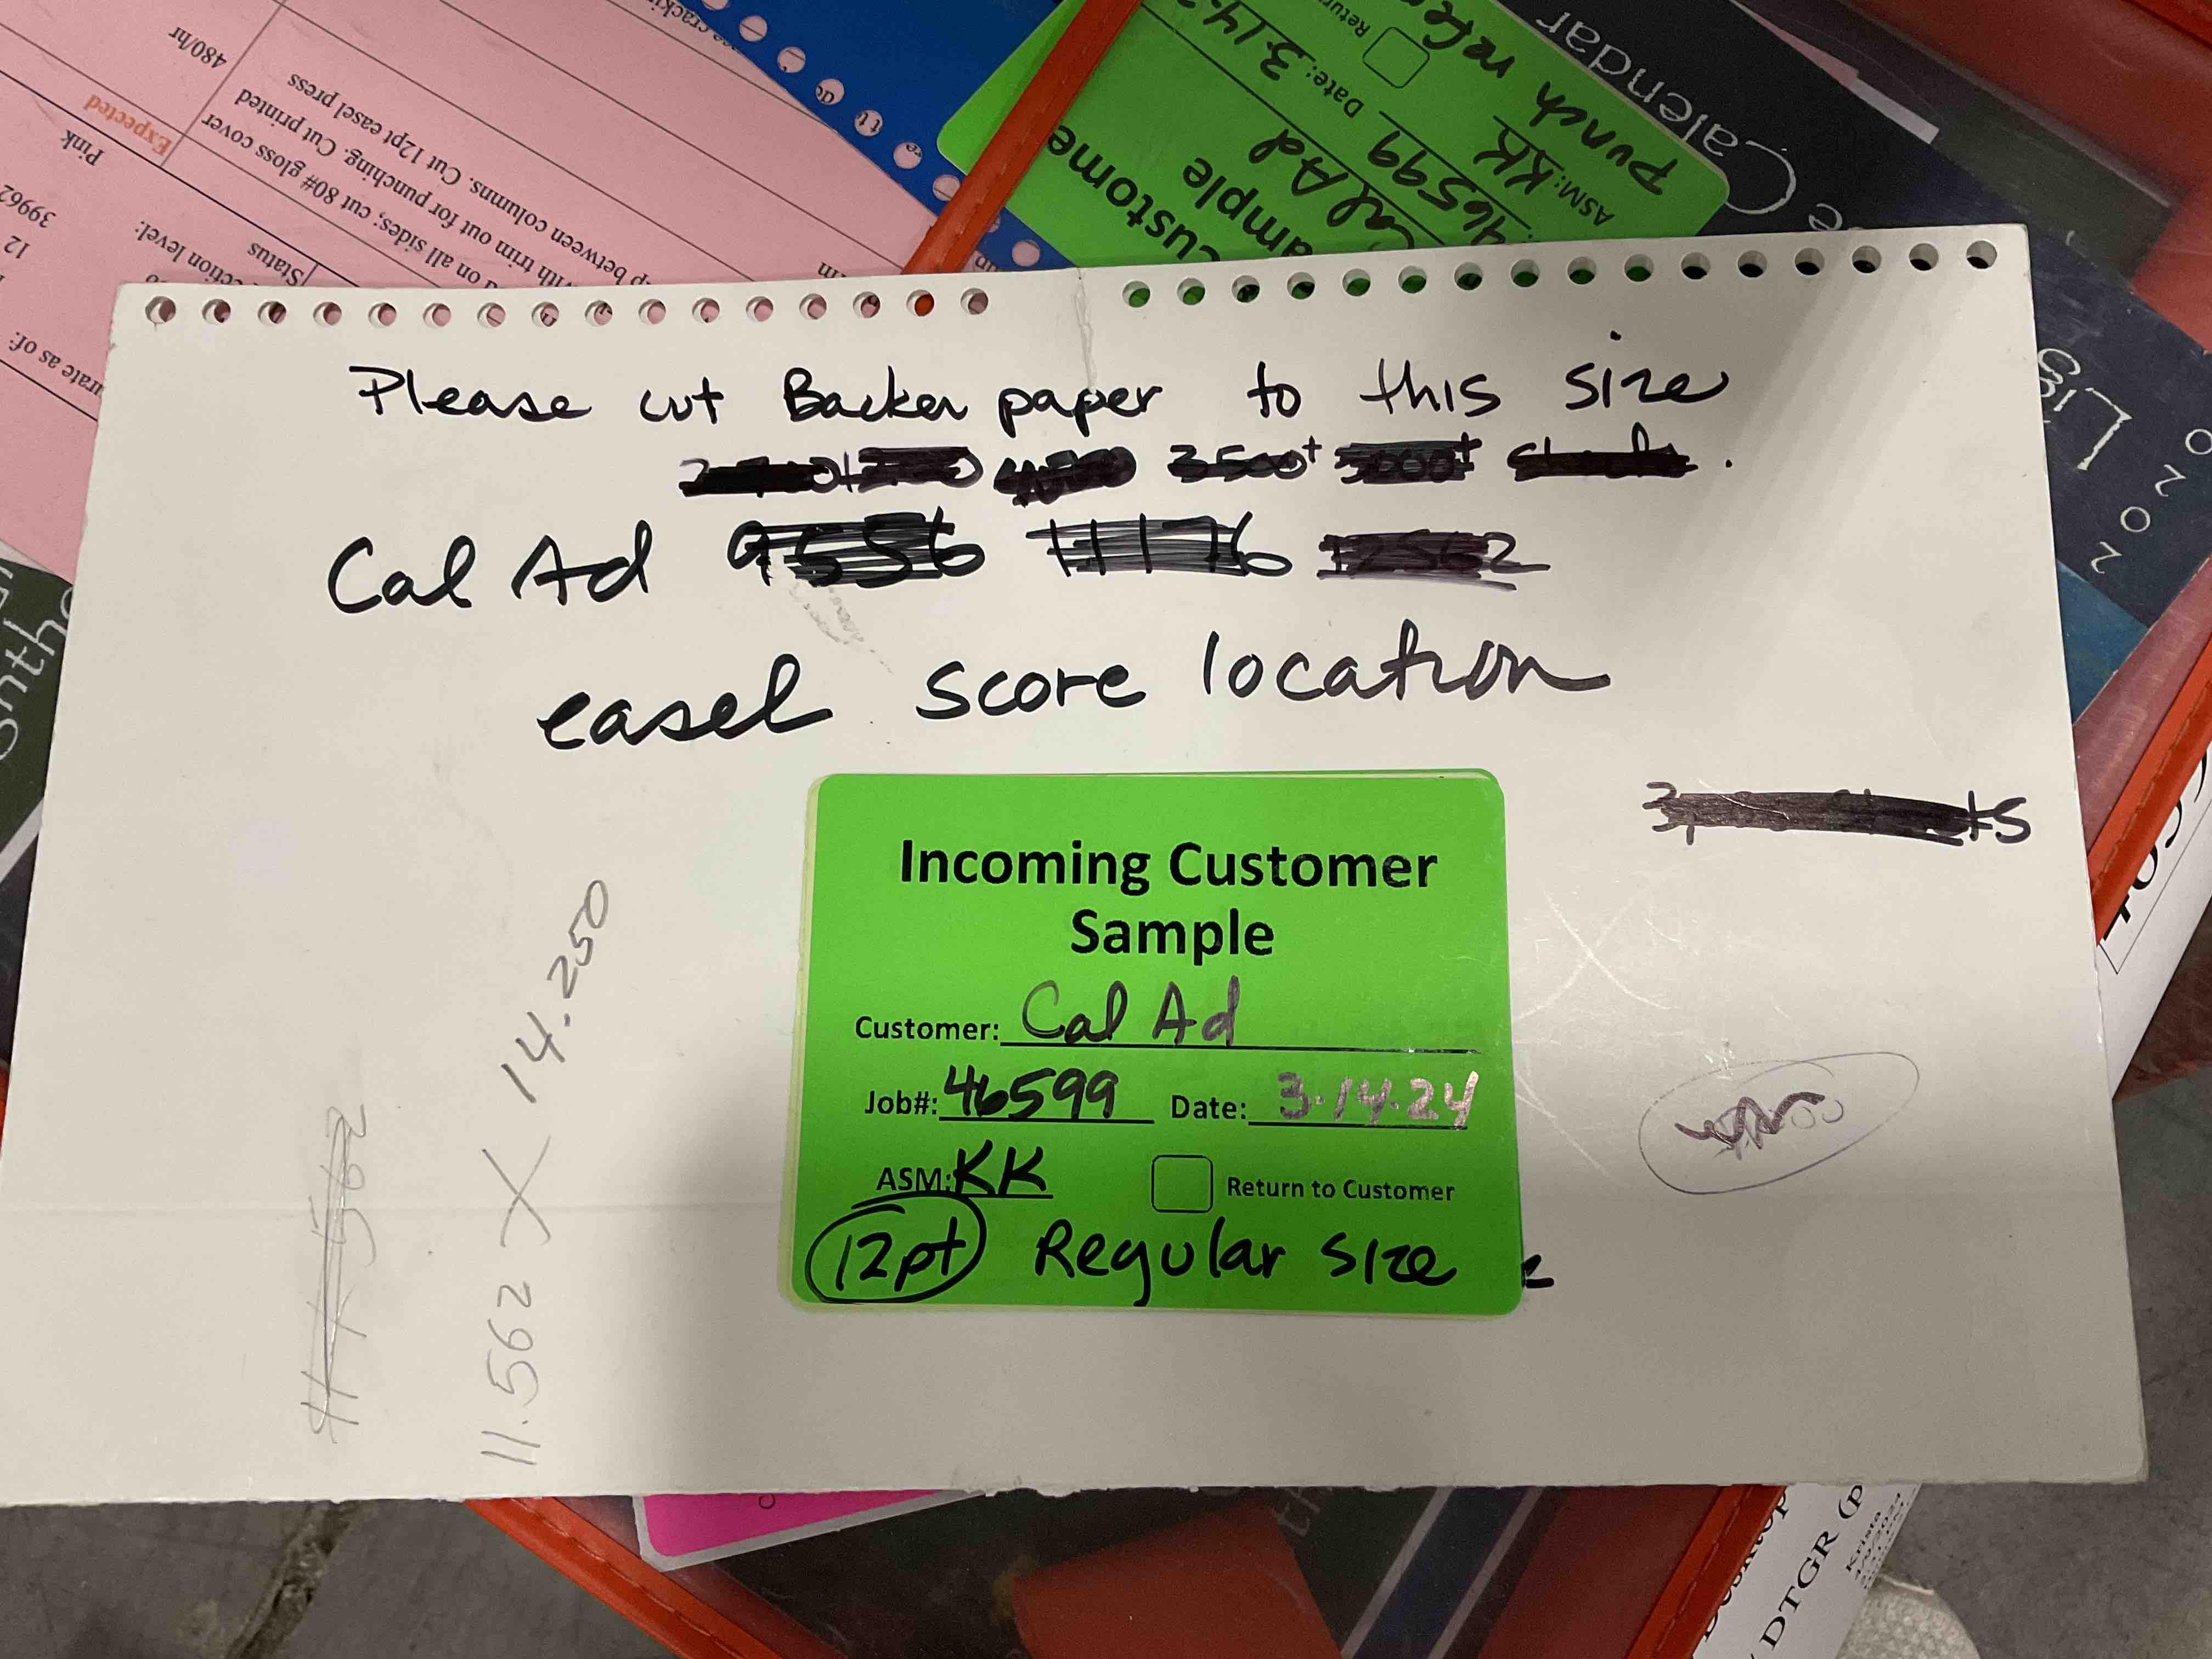 Please cut Backer paper to this size
3500+ 5000+
Cal Ad 9556 11176 12562
easel score location
Incoming Customer
Sample
Customer: Cal Ad
Job#: 46599 Date: 3.14.24
ASM: KK Return to Customer
12pt Regular size
11.562 X 14.250
480/hr
Expected
Pink
Status
between columns. Cut 12pt easel press
with trim out for punching. Cut printed
on all sides; cut 80# gloss cover
ection level:
12
39962
urate as of:
Custome
ample
Cal Ad
46599 Date: 3.14.2
ASM: KK
punch refe
Calendar
Lig
2020
DTGR (p